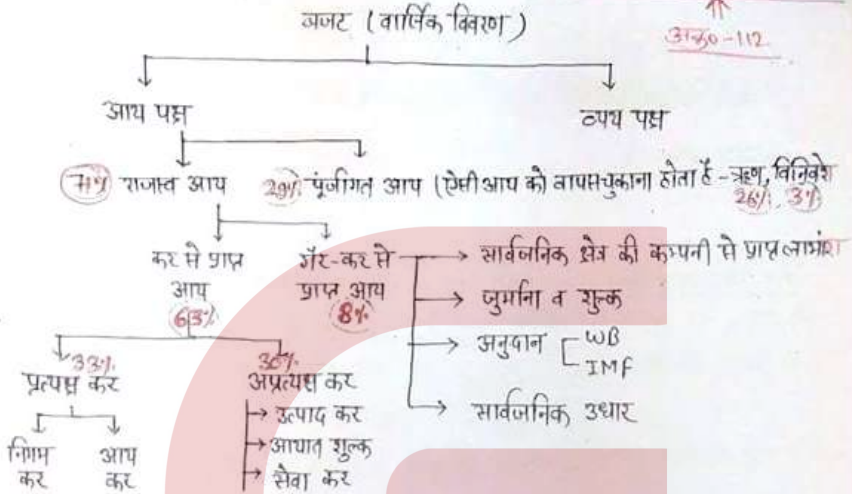 बजट (वार्षिक विवरण)
अनु०-112
आय पक्ष
व्यय पक्ष
71% राजस्व आय
29% पूंजीगत आय (ऐसी आय को वापस चुकाना होता है - ऋण, विनिवेश
26%, 3%
कर से प्राप्त आय
63%
गैर-कर से प्राप्त आय
8%
→ सार्वजनिक क्षेत्र की कम्पनी से प्राप्त लाभांश
→ जुर्माना व शुल्क
→ अनुदान [ WB
IMF
→ सार्वजनिक उधार
33%
प्रत्यक्ष कर
निगम कर
आय कर
30%
अप्रत्यक्ष कर
→ उत्पाद कर
→ आयात शुल्क
→ सेवा कर